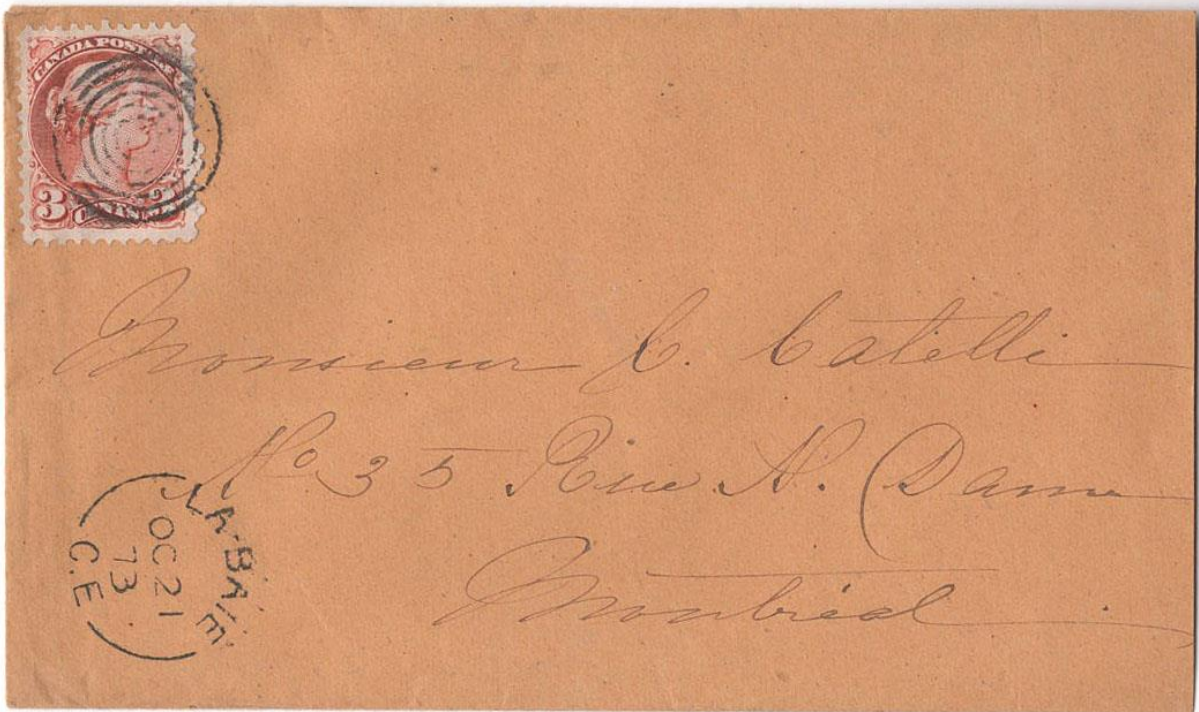 CANADA POSTAGE
3 CENTS
Monsieur C. Catelli
No 35 Rue N. Dame
Montréal
LA-BAIE
OC 21
73
C.E